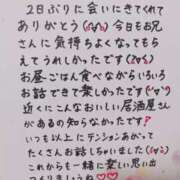 2日ぶりに会いにきてくれて
ありがとう(>ω<)今日もお兄
さんに気持ちよくなってもら
えてうれしかったです(≧▽≦)
お昼ごはん食べながらいろいろ
お話できて楽しかったです
近くにこんなおいしい居酒屋さん
があるの知らなかったです
いつも以上にテンションあがって
たくさんお話しちゃいました
これからも一緒に楽しい思い出
つくりましょうね♡♡